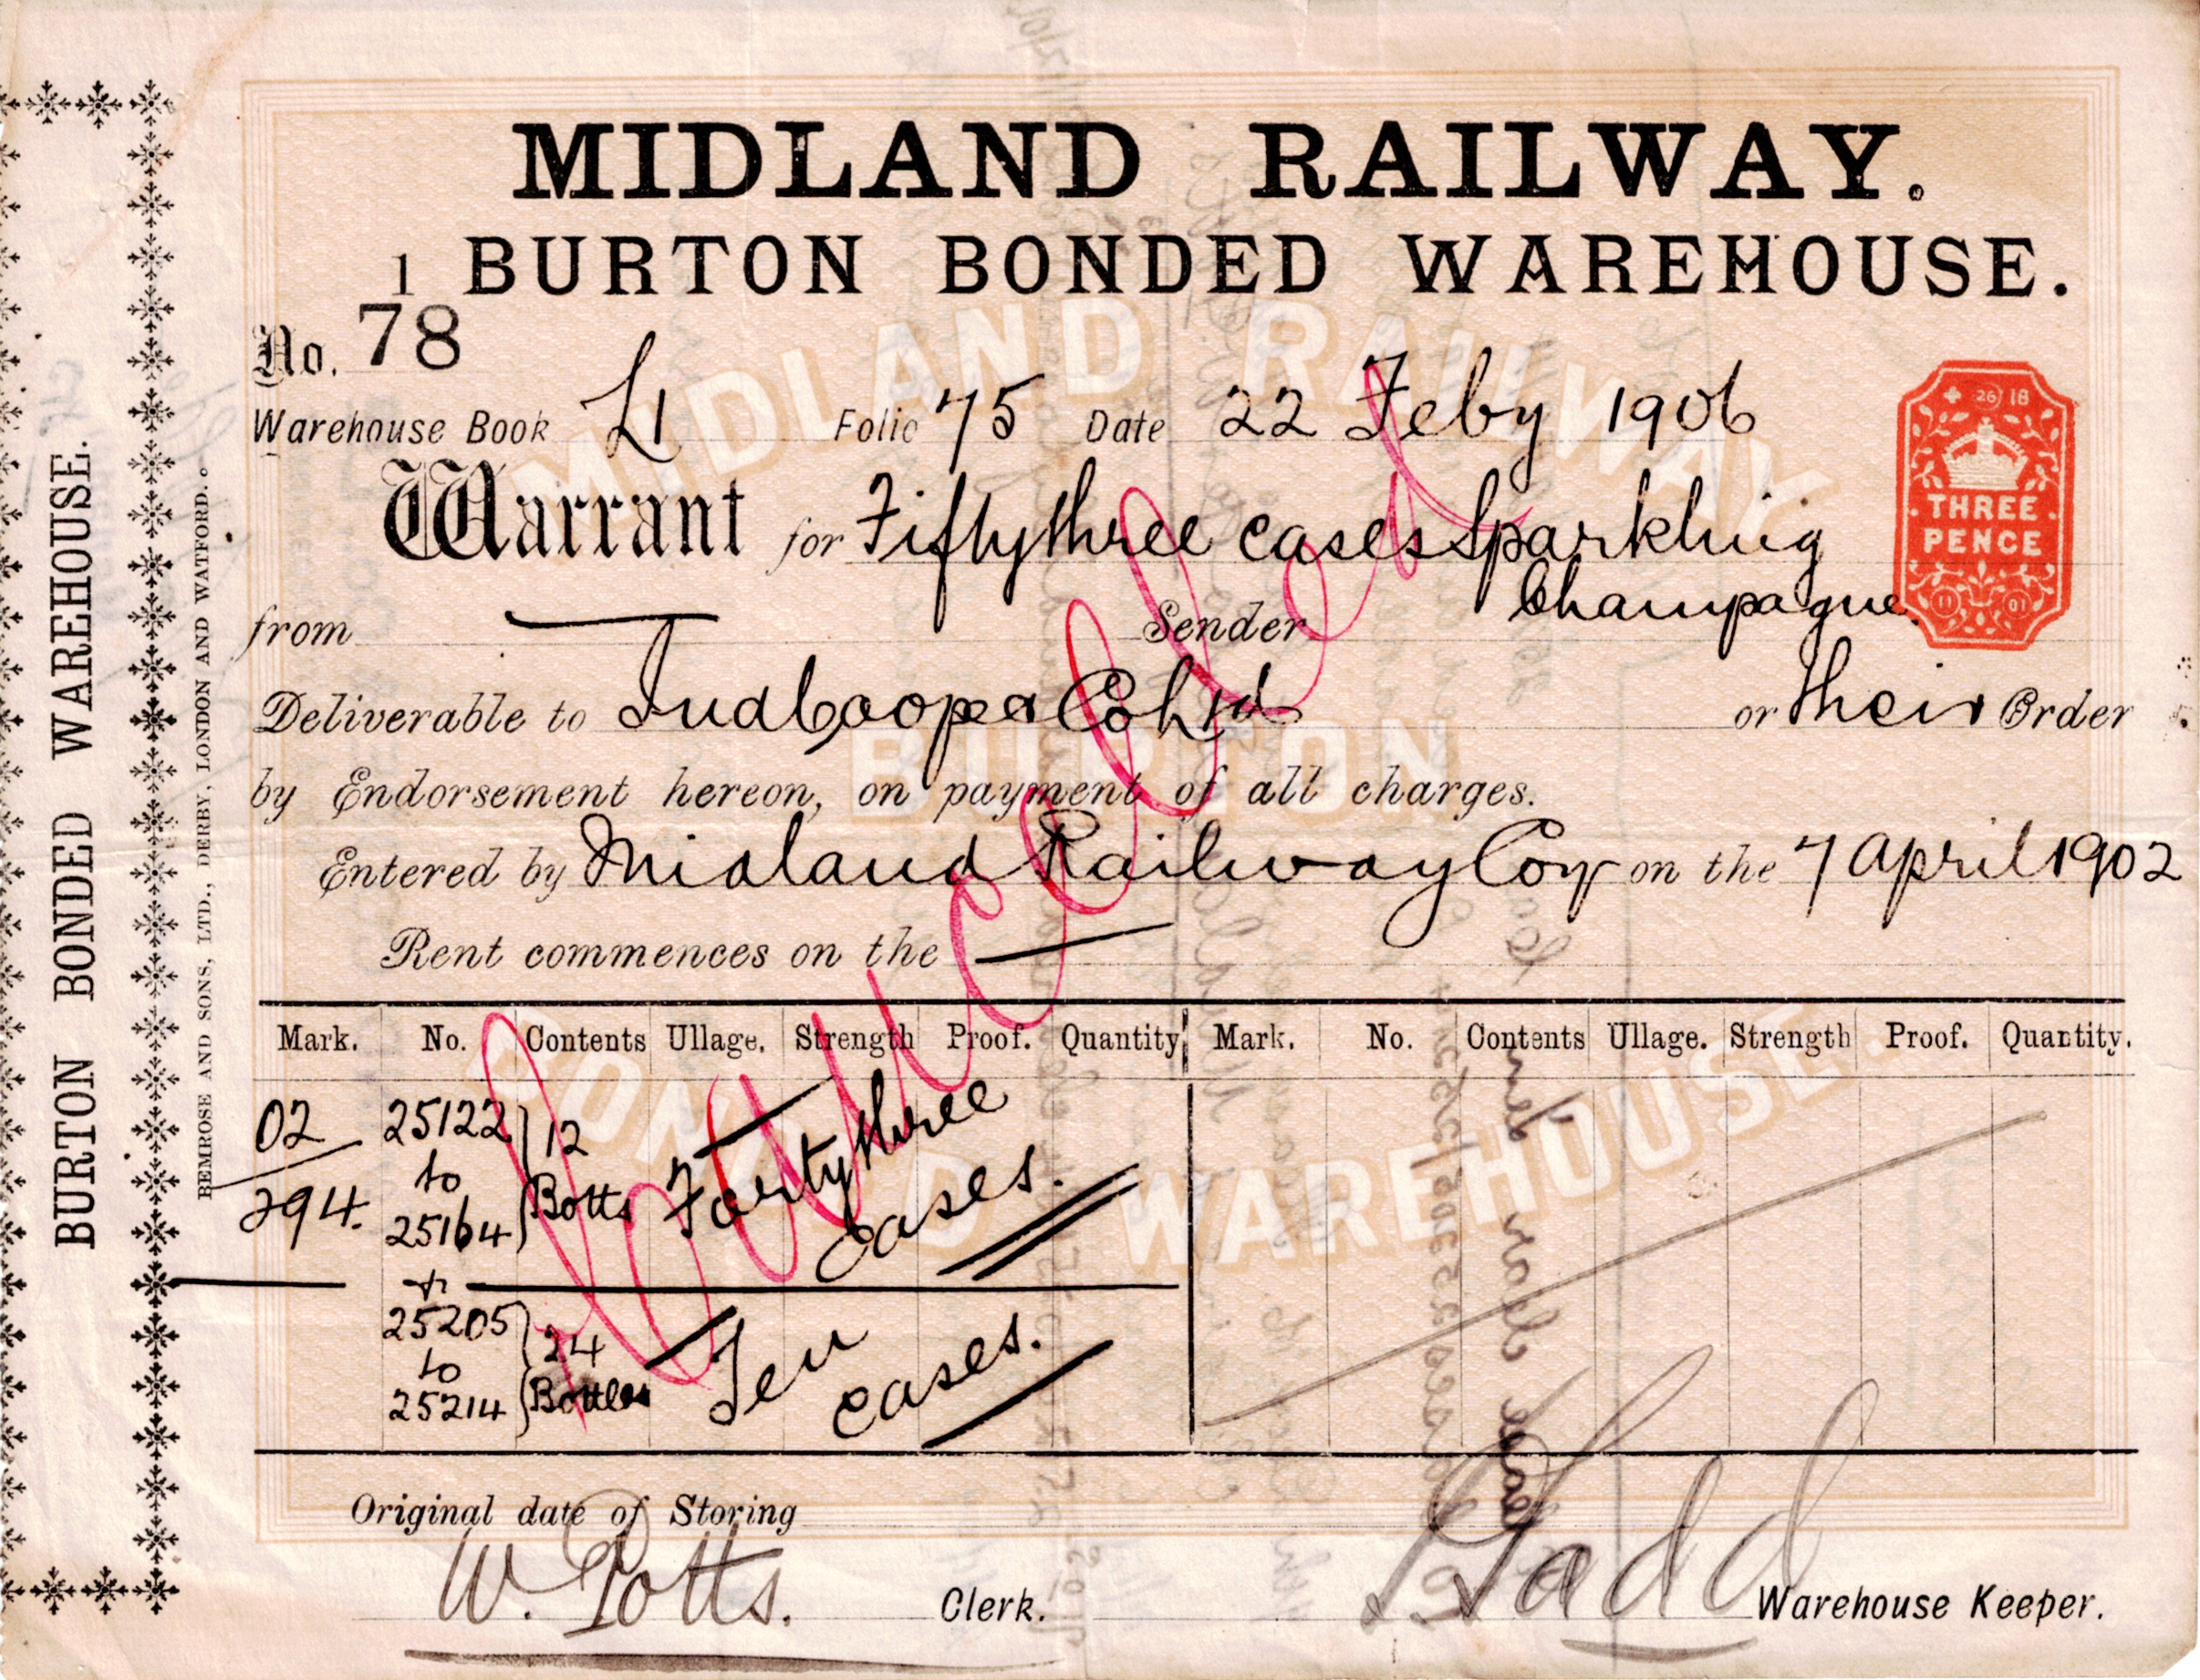 MIDLAND RAILWAY.
1 BURTON BONDED WAREHOUSE.
No. 78
Warehouse Book L1 Folio 75 Date 22 Feby 1906
Warrant for Fiftythree cases Sparkling
Champagne
from Sender
Deliverable to Ind Coope & Co Ltd or their Order
by Endorsement hereon, on payment of all charges.
Entered by Midland Railway Coy on the 7 April 1902
Rent commences on the
Mark. No. Contents Ullage. Strength Proof. Quantity Mark. No. Contents Ullage. Strength Proof. Quantity.
02 25122 12 Fortythree
to
294. 25164 Botts cases.
25205 24 Ten
to
25214 Bottles cases.
Original date of Storing
W. Potts. Clerk. Gadd Warehouse Keeper.
Cancelled
26 18
THREE
PENCE
11 01
BURTON BONDED WAREHOUSE.
BEMROSE AND SONS, LTD., DERBY, LONDON AND WATFORD.
MIDLAND RAILWAY
BURTON
BONDED WAREHOUSE